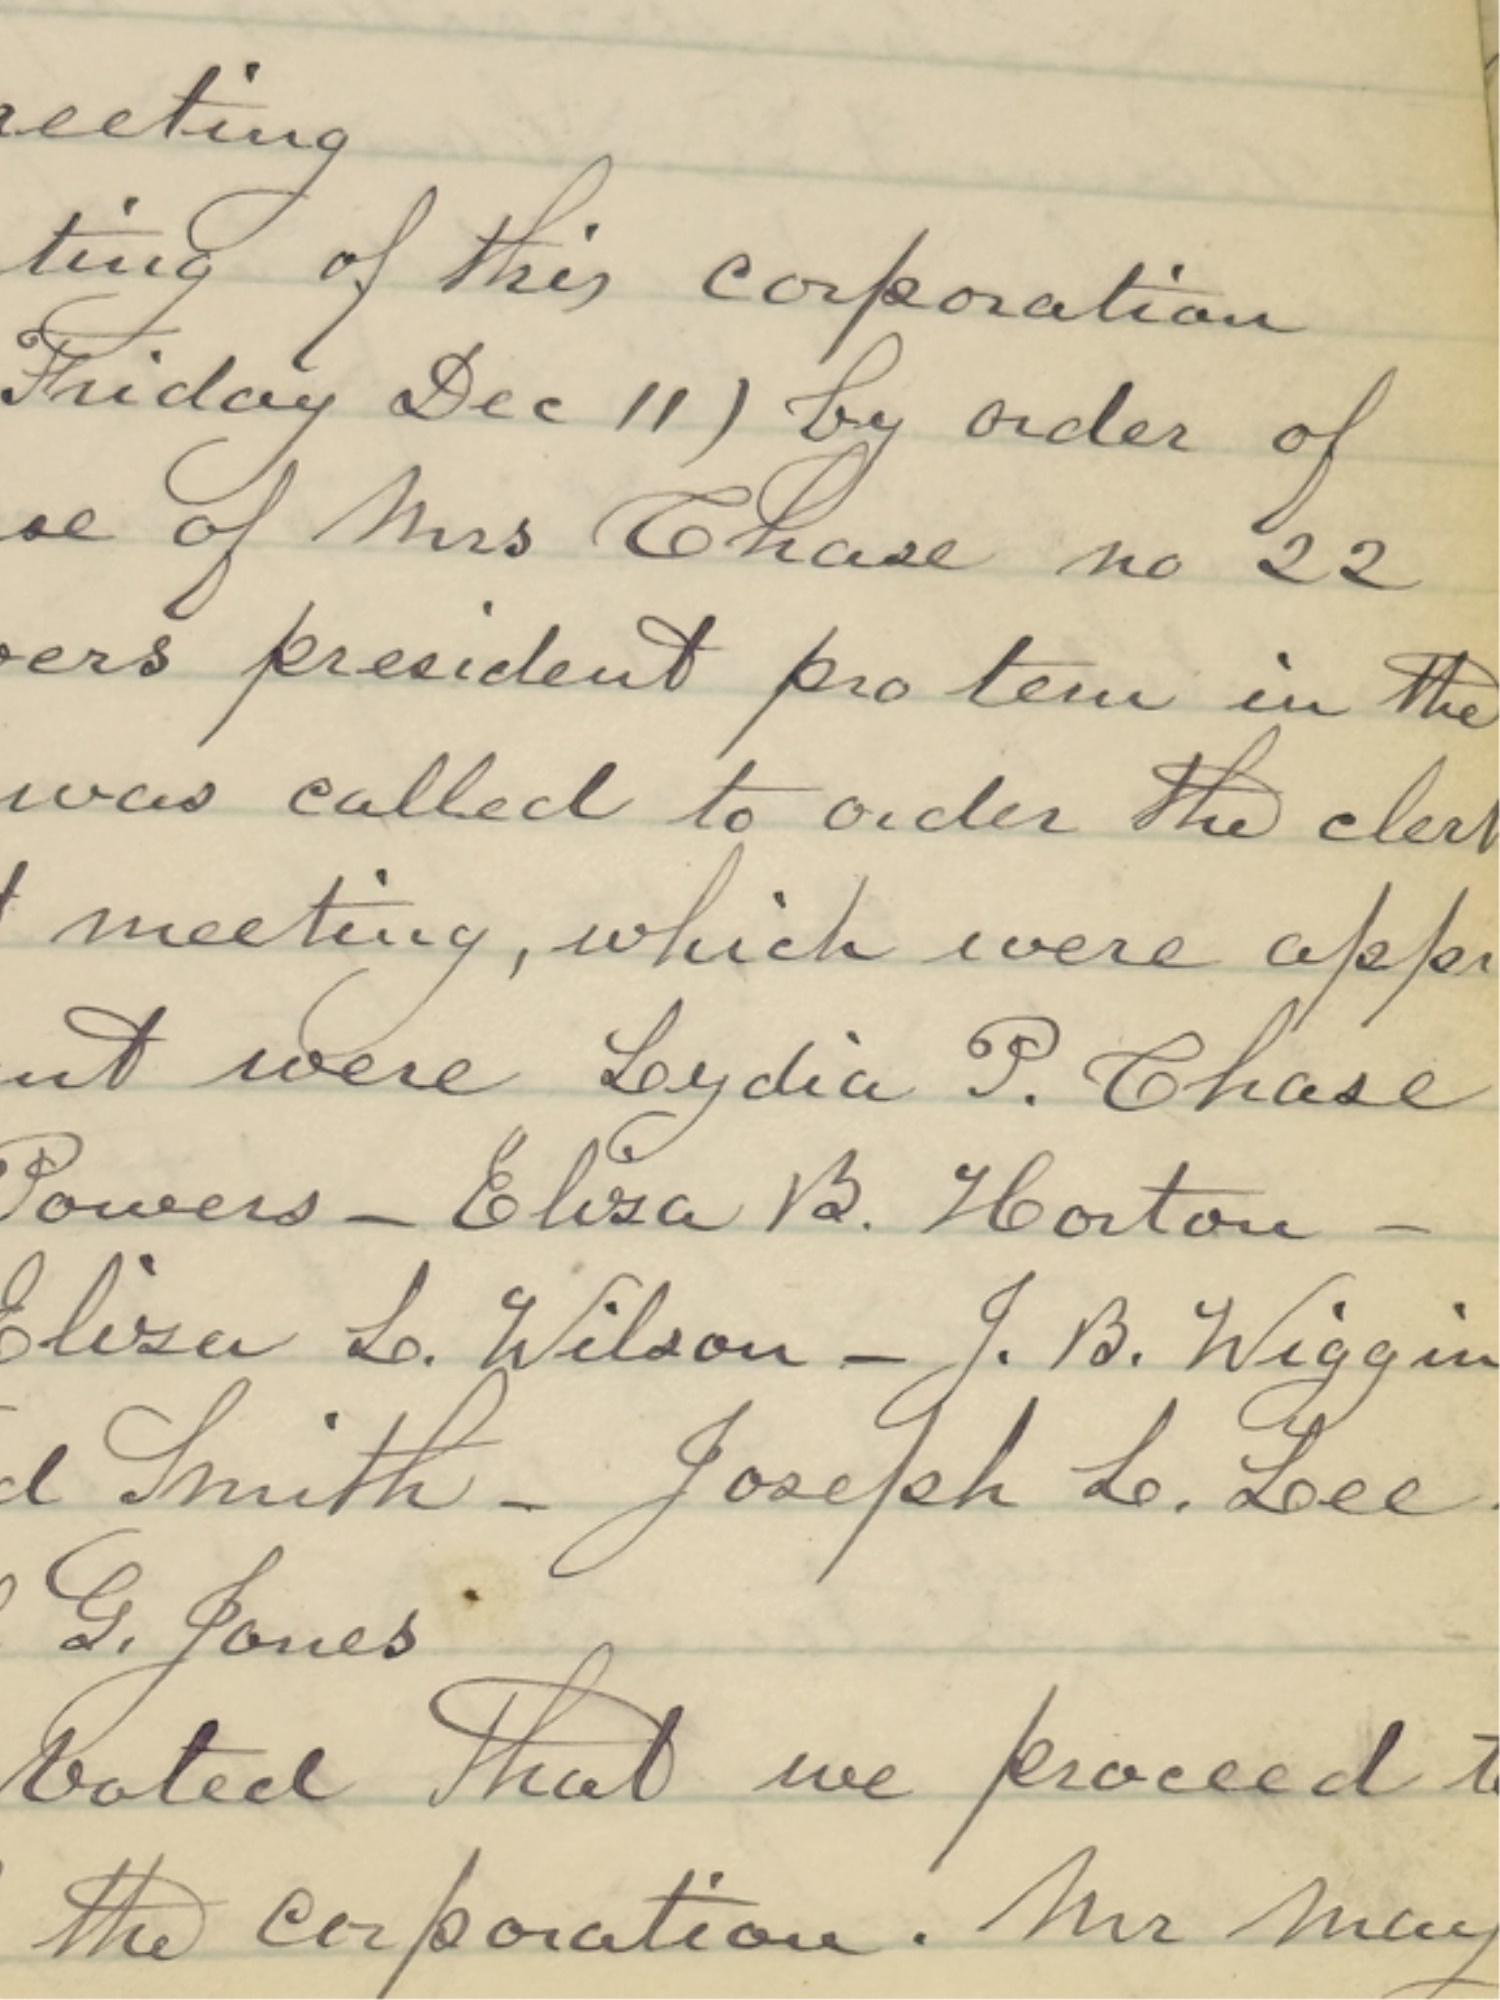 reeting
ting of this corporation
Friday Dec 11) by order of
se of Mrs Chase no 22
vers president pro tem in the
was called to order the clerk
t meeting, which were appr
nt were Lydia P. Chase
Powers - Eliza B. Horton -
Eliza L. Wilson - J. B. Wiggin
d Smith - Joseph L. Lee -
G. Jones
Voted That we proceed to
the corporation. Mr May